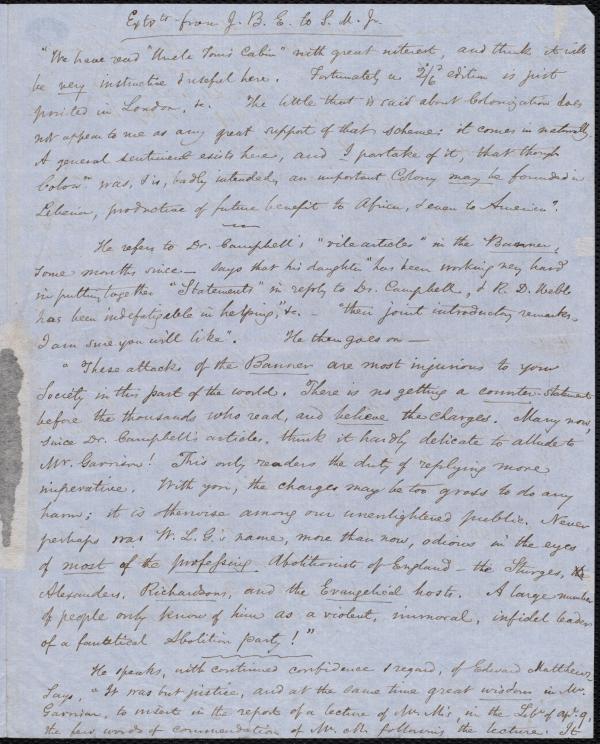 Extrcts from J. B. E. to S. M. Jr.
"We have read "Uncle Tom's Cabin" with great interest, and think it will
be very instructive & useful here. Fortunately a 2/6d edition is just
printed in London, &c. The little that is said about Colonization does
not appear to me as any great support of that scheme: it comes in naturally.
A general sentiment exists here, and I partake of it, that though
Colonn was, & is, badly intended, an important Colony may be founded in
Liberia, productive of future benefit to Africa, & even to America".
He refers to Dr. Campbell's "vile articles" in the Banner,
some months since — says that his daughter "has been working very hard
in putting together "Statements" in reply to Dr. Campbell, & R. D. Webb
has been indefatigable in helping", &c. — "their joint introductory remarks
I am sure you will like". He then goes on —
"These attacks of the Banner are most injurious to your
Society in this part of the world. There is no getting a counter-statement
before the thousands who read, and believe the charges. Many now,
since Dr. Campbell's articles, think it hardly delicate to allude to
Mr. Garrison! This only renders the duty of replying more
imperative. With you, the charges may be too gross to do any
harm; it is otherwise among our unenlightened public. Never
perhaps was W. L. G.'s name, more than now, odious in the eyes
of most of the professing Abolitionist of England — the Sturges, the
Alexanders, Richardsons, and the Evangelical hosts. A large number
of people only know of him as a violent, immoral, infidel leader
of a fanatical Abolition party!"
He speaks, with continued confidence & regard, of Edward Matthews
Says, "It was but justice, and at the same time great wisdom in Mr.
Garrison, to insert in the report of a lecture of Mr. M's, in the Libr. of apl. 9,
the few words of commendation of Mr. M. following the lecture. It